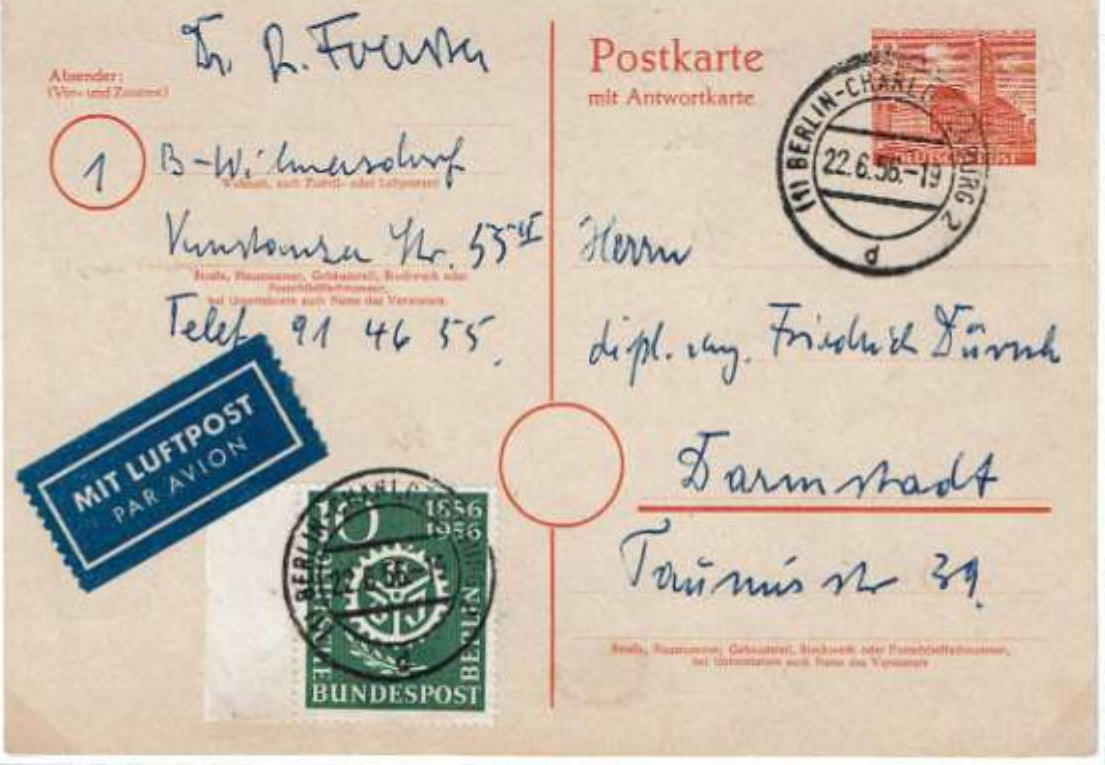 Dr. R. Foerster
Absender:
(Vor- und Zuname)
1
B-Wilmersdorf
Wohnort, auch Zustell- oder Leitpostamt
Konstanzer Str. 55
Straße, Hausnummer, Gebäudeteil, Stockwerk oder
Postschließfachnummer,
bei Untermietern auch Name des Vermieters
Telef. 91 46 55.
MIT LUFTPOST
PAR AVION
10 1856
1956
BERLIN
BUNDESPOST
(1) BERLIN-CHARLOTTENBURG
22.6.56.
d
Postkarte
mit Antwortkarte
DEUTSCHE POST
(1) BERLIN-CHARLOTTENBURG 2
22.6.56.-19
d
Herrn
dipl. ing. Friedrich
Darmstadt
Taunusstr 39.
Straße, Hausnummer, Gebäudeteil, Stockwerk oder Postschließfachnummer,
bei Untermietern auch Name des Vermieters